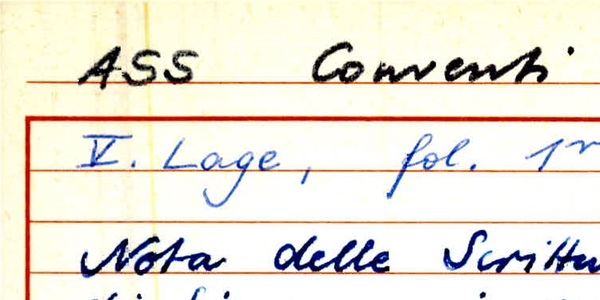 ASS Conventi
V. Lage, fol. 1r
Nota delle